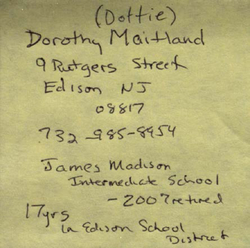 (Dottie)
Dorothy Maitland
9 Rutgers Street
Edison NJ
08817
732-985-8954
James Madison
Intermediate School
- 2007 retired
17yrs
in Edison School
District